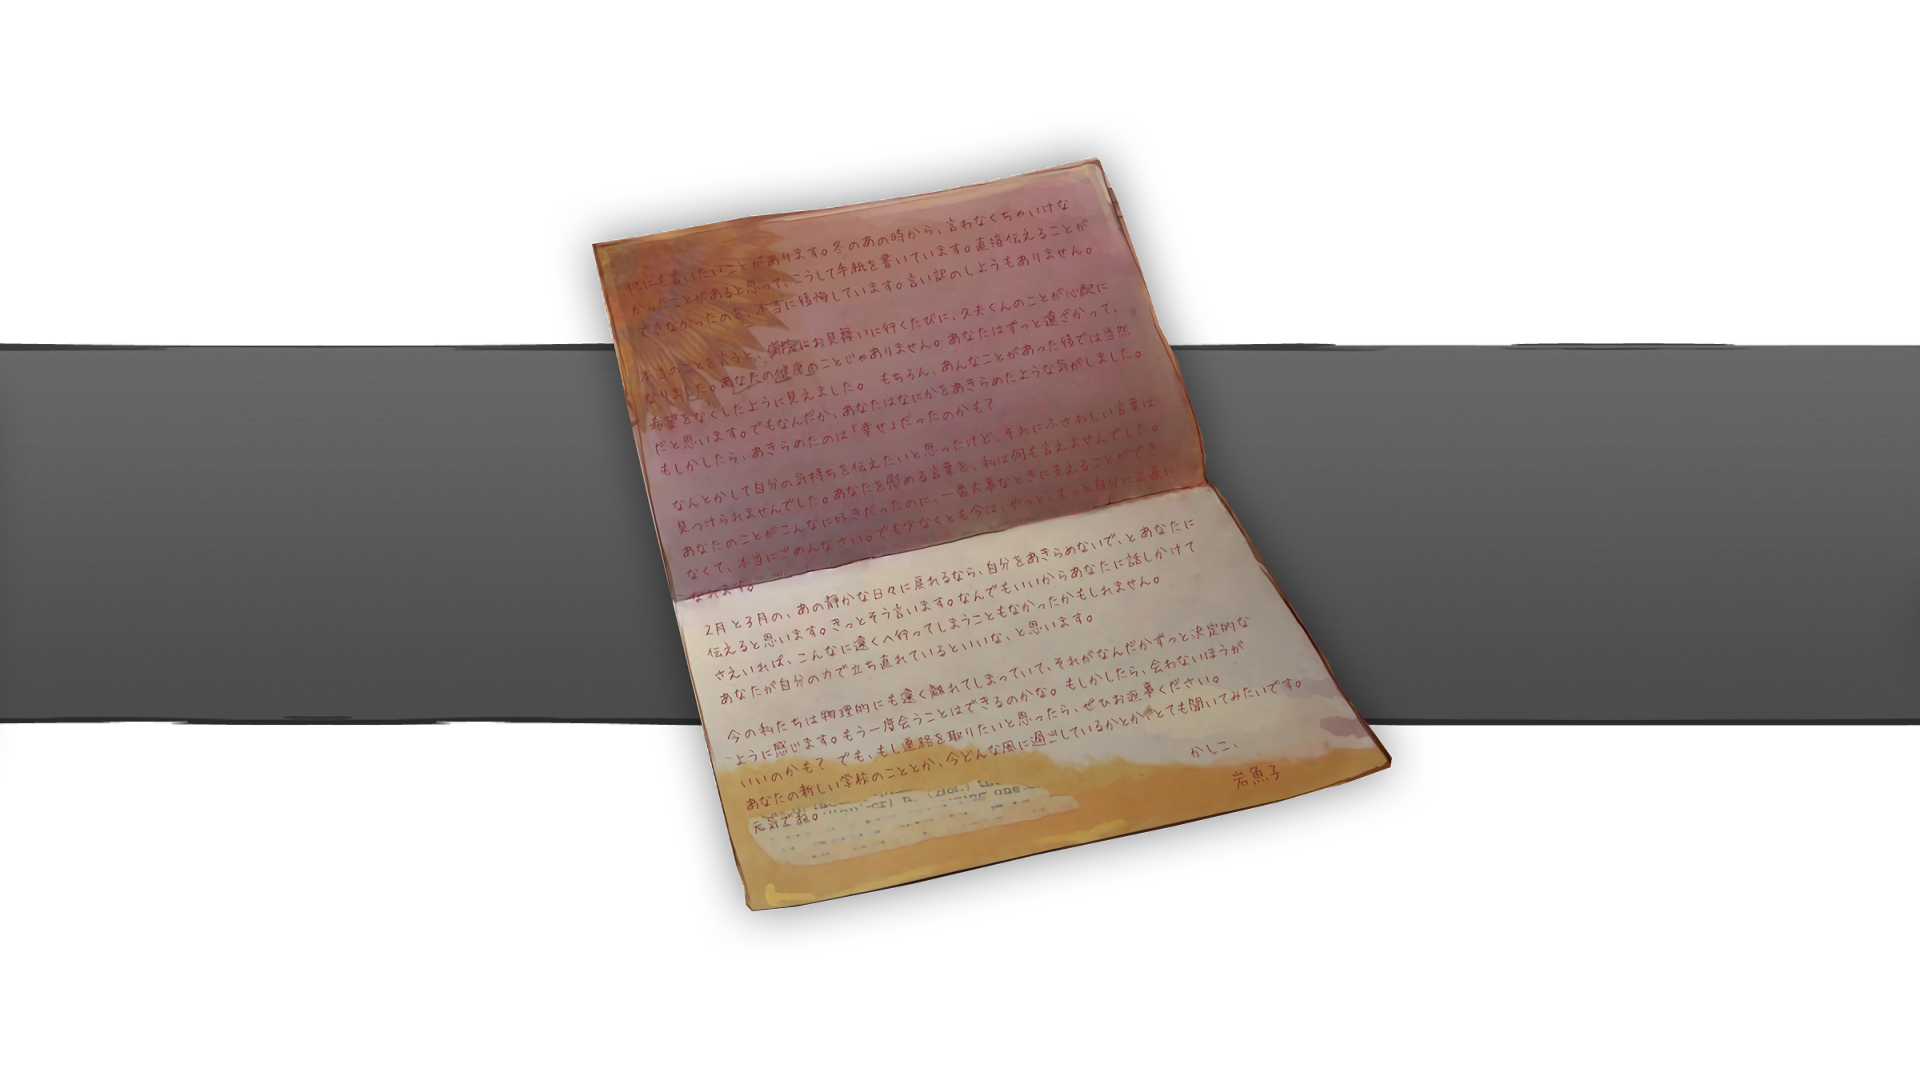 他にも言いたいことがあります。冬のあの時から、言わなくちゃいけな
かったことがあると思って、こうして手紙を書いています。直接伝えることが
できなかったのを、本当に後悔しています。言い訳のしようもありません。
本当のことを言うと、病院にお見舞いに行くたびに、久夫くんのことが心配に
なりました。あなたの健康のことじゃありません。あなたはずっと遠ざかって、
希望をなくしたように見えました。 もちろん、あんなことがあった後では当然
だと思います。でもなんだか、あなたはなにかをあきらめたような気がしました。
もしかしたら、あきらめたのは「幸せ」だったのかも?
なんとかして自分の気持ちを伝えたいと思ったけど、それにふさわしい言葉は
見つけられませんでした。あなたを慰める言葉を、私は何も言えませんでした。
あなたのことがこんなに好きだったのに、一番大事なときに支えることができ
なくて、本当にごめんなさい。でも少なくとも今は、やっと、もっと自分に正直に
なれます。
2月と3月の、あの静かな日々に戻れるなら、自分をあきらめないで、とあなたに
伝えると思います。きっとそう言います。なんでもいいからあなたに話しかけて
さえいれば、こんなに遠くへ行ってしまうこともなかったかもしれません。
あなたが自分の力で立ち直れているといいな、と思います。
今の私たちは物理的にも遠く離れてしまっていて、それがなんだかずっと決定的な
ように感じます。もう一度会うことはできるのかな。もしかしたら、会わないほうが
いいのかも? でも、もし連絡を取りたいと思ったら、ぜひお返事ください。
あなたの新しい学校のこととか、今どんな風に過ごしているかとか、とても聞いてみたいです。
元気でね。
かしこ、
岩魚子